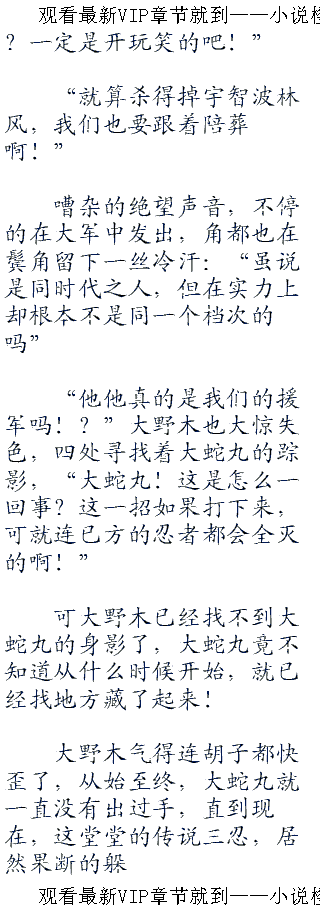 观看最新VIP章节就到——小说检
？一定是开玩笑的吧！”
“就算杀得掉宇智波林
风，我们也要跟着陪葬
啊！”
嘈杂的绝望声音，不停
的在大军中发出，角都也在
鬓角留下一丝冷汗：“虽说
是同时代之人，但在实力上
却根本不是同一个档次的
吗”
“他他真的是我们的援
军吗！？”大野木也大惊失
色，四处寻找着大蛇丸的踪
影，“大蛇丸！这是怎么一
回事？这一招如果打下来，
可就连己方的忍者都会全灭
的啊！”
可大野木已经找不到大
蛇丸的身影了，大蛇丸竟不
知道从什么时候开始，就已
经找地方藏了起来！
大野木气得连胡子都快
歪了，从始至终，大蛇丸就
一直没有出过手，直到现
在，这堂堂的传说三忍，居
然果断的躲
观看最新VIP章节就到——小说检